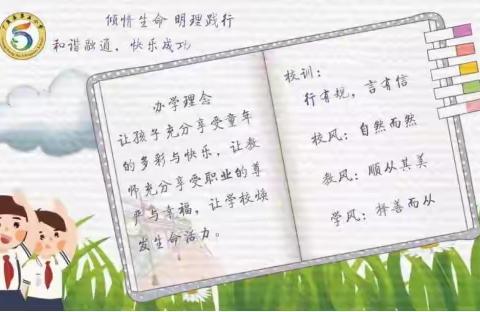 倾情生命 明理践行
和谐融通、快乐成功
办学理念
让孩子充分享受童年
的多彩与快乐，让教
师充分享受职业的尊
严与幸福，让学校焕
发生命活力。
校训：
行有规，言有信
校风：自然而然
教风：顺从其美
学风：择善而从